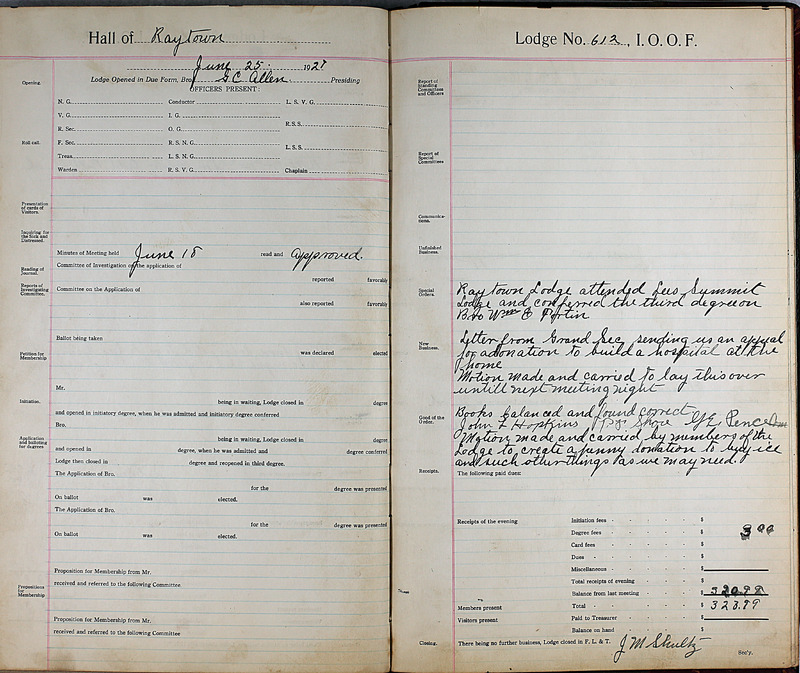 Hall of Raytown
June 25 1927
Opening.
Lodge Opened in Due Form, Bro. G C Allen Presiding
OFFICERS PRESENT:
N. G. Conductor L. S. V. G.
V. G. I. G.
R.S.S.
R. Sec. O. G.
Roll call.
F. Sec. R. S. N. G.
L.S.S.
Treas. L. S. N. G.
Warden R. S. V. G. Chaplain
Presentation
of cards of
Visitors.
Inquiring for
the Sick and
Distressed.
Minutes of Meeting held June 18 read and approved.
Reading of
Journal.
Committee of Investigation on the application of
reported favorably
Reports of
Investigating
Committee.
Committee on the Application of
also reported favorably
Ballot being taken
was declared elected
Petition for
Membership
Mr.
Initiation.
being in waiting, Lodge closed in degree
and opened in initiatory degree, when he was admitted and initiatory degree conferred
Bro.
Application
and balloting
for degrees
being in waiting, Lodge closed in degree
and opened in degree, when he was admitted and degree conferred
Lodge then closed in degree and reopened in third degree.
The Application of Bro.
for the degree was presented
On ballot was elected.
The Application of Bro.
for the degree was presented
On ballot was elected.
Proposition for Membership from Mr.
Propositions
for
Membership
received and referred to the following Committee
Proposition for Membership from Mr.
received and referred to the following Committee
Lodge No. 612, I. O. O. F.
Report of
Standing
Committees
and Officers
Report of
Special
Committees
Communica-
tions.
Unfinished
Business.
Special
Orders.
Raytown Lodge attended Lees Summit
Lodge and conferred the third degree on
Bro Wm E Portin
New
Business.
Letter from Grand Sec sending us an appeal
for a donation to build a hospital at the
home
Motion made and carried to lay this over
untill next meeting night
Good of the
Order.
Books balanced and found correct
John F Hopkins Shore G E Pence
Motion made and carried by members of the
Lodge to create a penny donation to buy ice
and such other things as we may need.
Receipts.
The following paid dues:
Receipts of the evening Initiation fees $
Degree fees $ 3 00
Card fees $
Dues $
Miscellaneous $
Total receipts of evening $
Balance from last meeting $ 320.99
Members present Total $ 323.99
Visitors present Paid to Treasurer $
Balance on hand $
Closing.
There being no further business, Lodge closed in F. L. & T. J M Shultz
Sec'y.